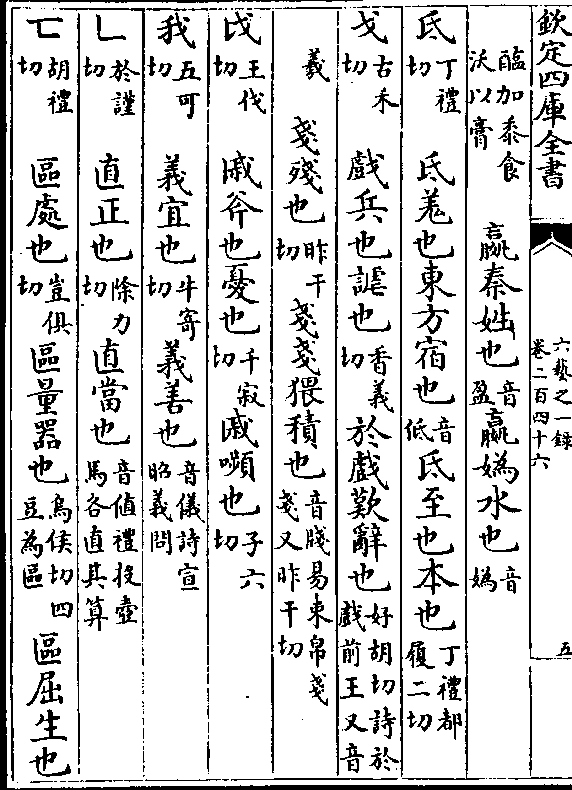 欽定四庫全書
六藝之一錄
卷二百四十六
五
醢加黍食沃以膏 嬴秦姓也音盈嬴媯水也音媯
氐丁禮切 氐羗也東方宿也音低氐至也本也丁禮都履二切
戈古禾切 戲兵也謔也香義切於戲歎辭也好胡切詩於戲前王又音
羲 戔殘也昨干切戔戔猥積也音牋易束帛戔戔又昨干切
戉王伐切 戚斧也憂也千寂切戚嚬也子六切
我五可切 義宜也牛寄切義善也音儀詩宣昭義問
乚於謹切 直正也除力切直當也音值禮投壺馬各直其算
匸胡禮切 區處也豈俱切區量器也烏侯切四豆為區區屈生也